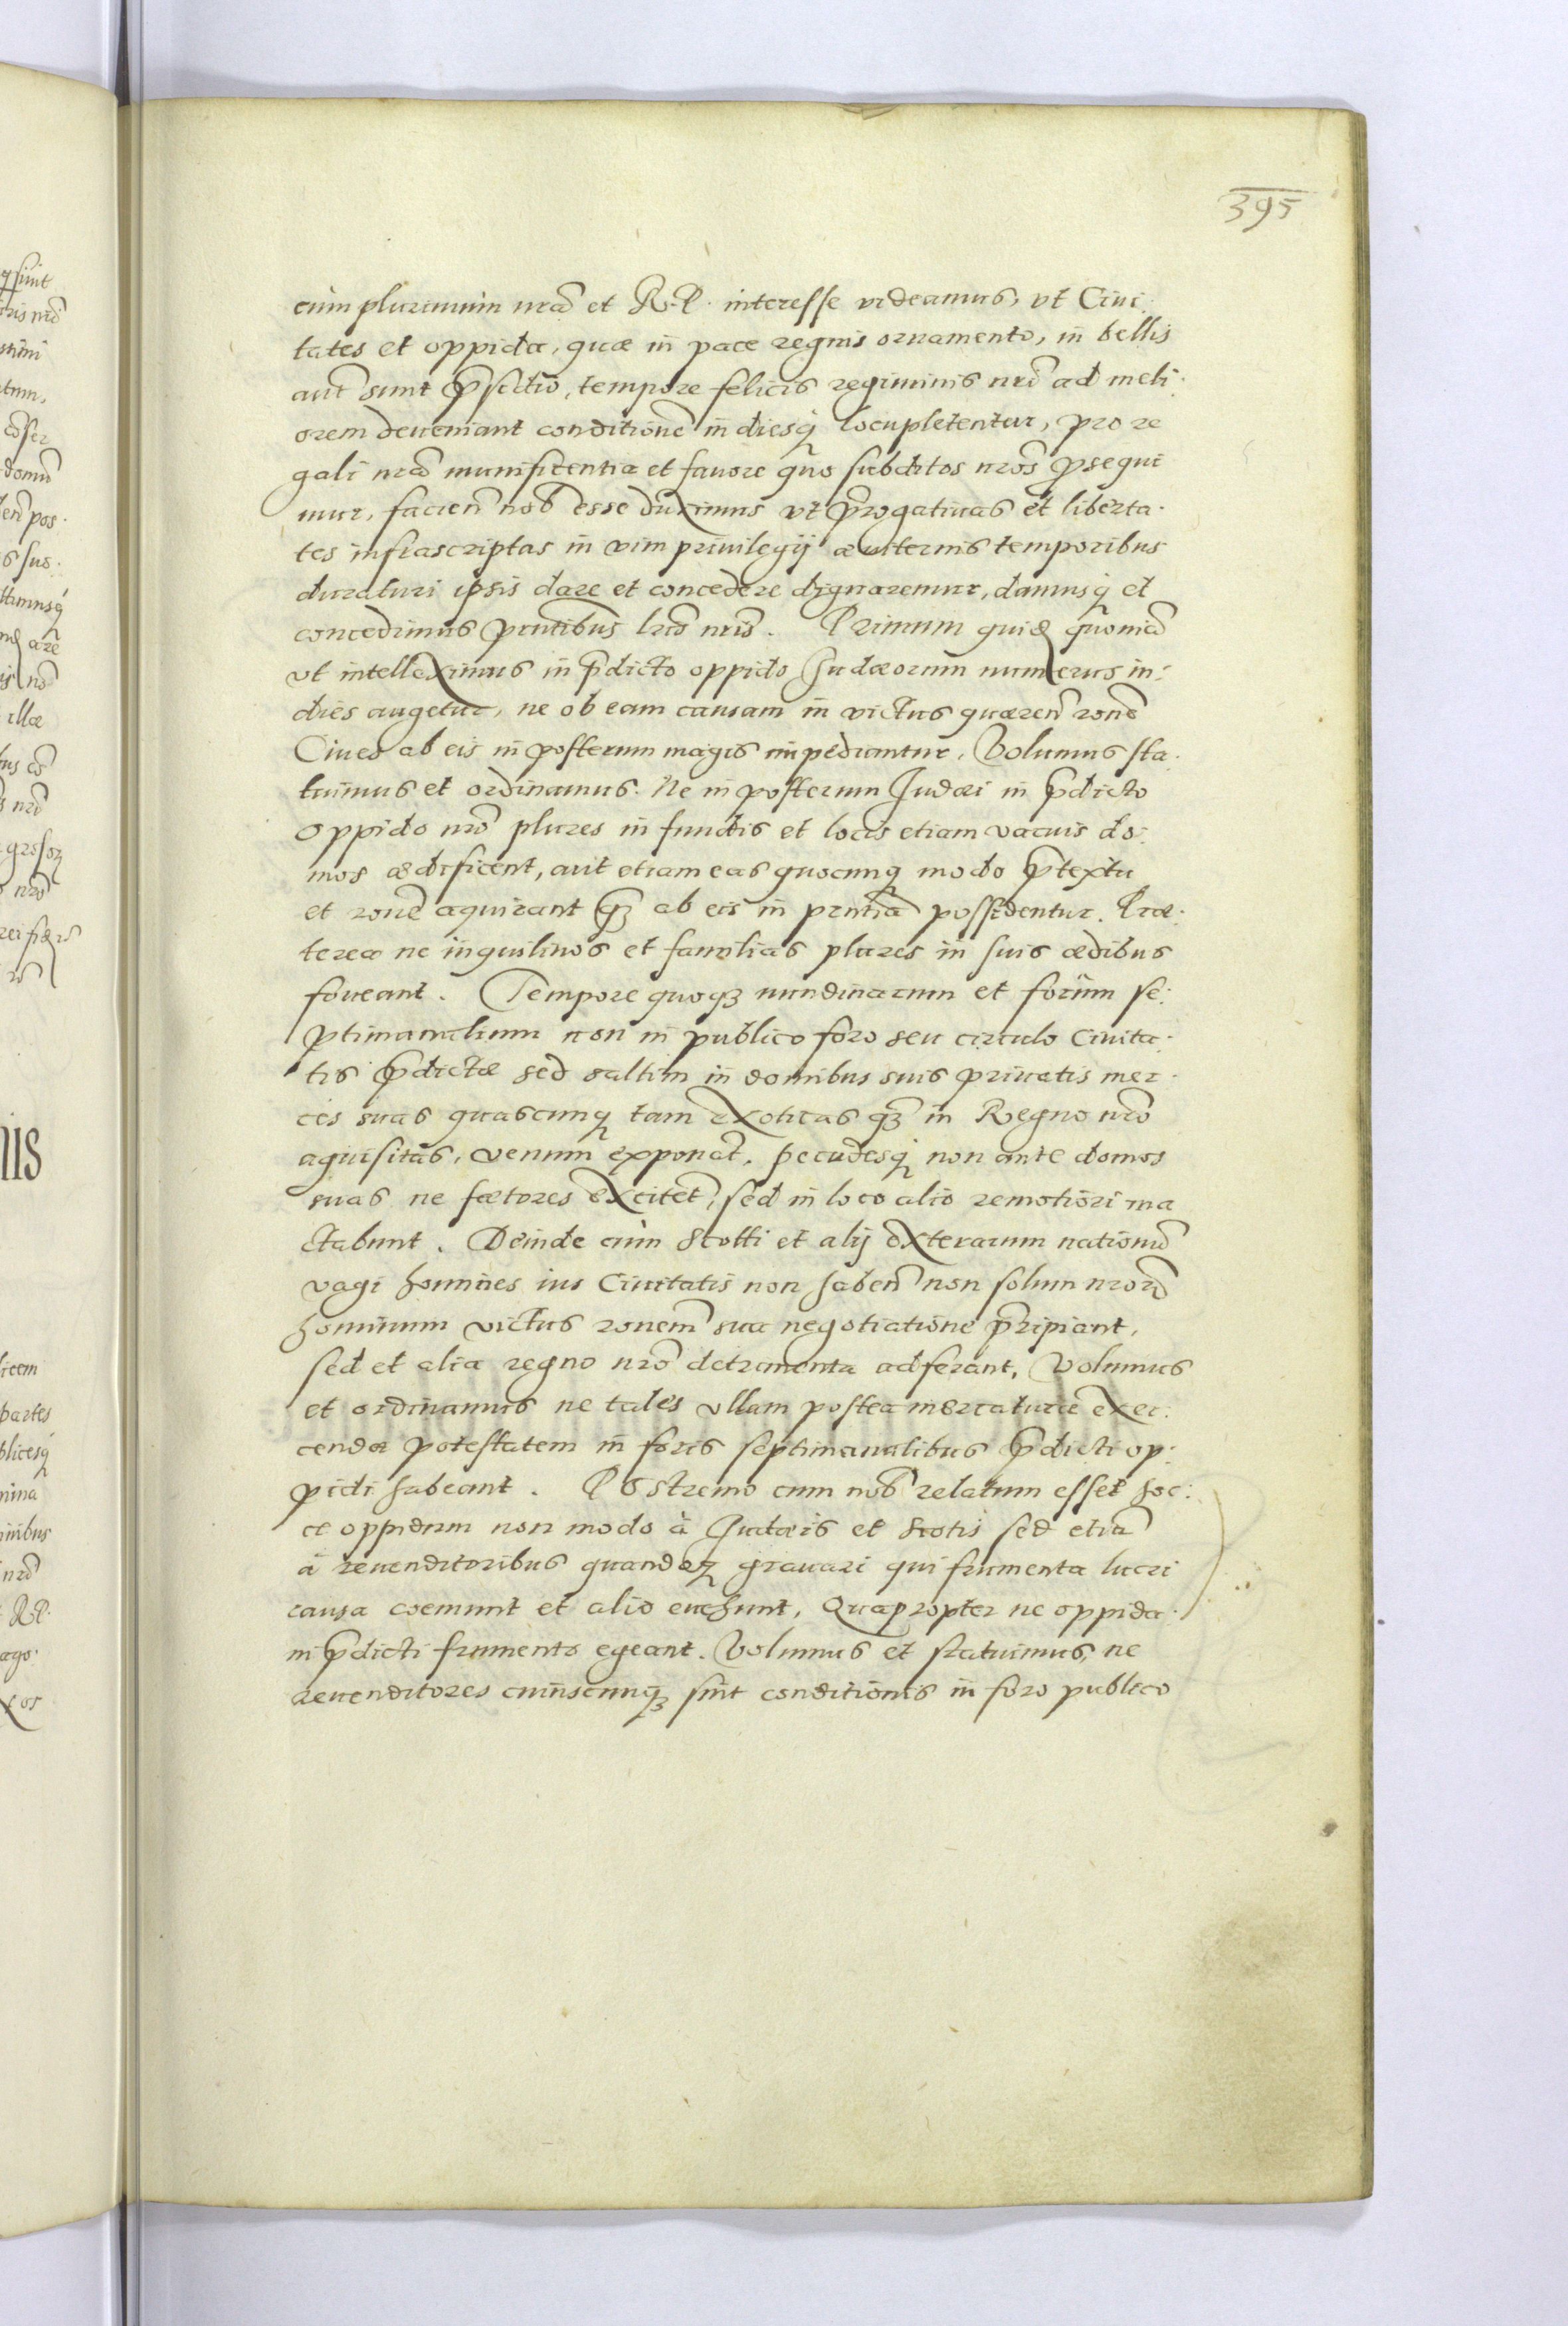 395
cùm plurimùm nrã et R.P. interesse videamus, vt Ciui:
tates et oppida, quæ in pace regnis ornamento, in bellis
aut sunt p̃sidio, tempore felicis regiminis nrĩ ad meli:
orem deueniant conditionẽ in diesq̃ locupletentur, pro re
gali nrã munificentia et fauore quo subditos nros p̃sequi
mur, facien̄ nob̃ esse duximus vt p̃rogatiuas et liberta:
tes infrascriptas in vim priuilegij æuiternis temporibus
duraturi ipsis dare et concedere dignaremur, damusq̃ et
concedimus pr̃ntibus lr̃is nr̃is. Primum quid̃ quoniã
vt intelleximus in p̃dicto oppido Judæorum numerus in:
dies augetur, ne ob eam causam in victus quæren̄ ronẽ
Ciues ab eis in posterum magis impediantur, Volumus sta:
tuimus et ordinamus. Ne in posterum Judæi in p̃dicto
oppido nrõ plures in fundis et locis etiam vacuis do:
mos ædificent, aut etiam eas quocunq̃ modo p̃textu
et ronẽ aquirant q̃ ab eis in prñtia possidentur. Præ:
terea ne inquilinos et familias plures in suis ædibus
foueant. Tempore quoq̃ nundinarum et forũm se:
ptimanalium non in publico foro seu circulo Ciuita:
tis p̃dictæ sed saltim in domibus suis priuatis mer:
ces suas quascunq̃ tam exoticas q̃ in Regno nrõ
aquisitas, venum exponãt. pecudesq̃ non ante domos
suas ne fætores excitẽt, sed in loco alio remotiori ma
ctabunt. Deinde cùm Scotti et alij exterarum nationũ
vagi homines ius Ciuitatis non haben̄ non solum nrorũ
hominum victus ronem̃ sua negotiatione p̃ripiant,
sed et alia regno nrõ detrimenta adferant, Volumus
et ordinamus ne tales vllam postea mercaturæ exer:
cendæ potestatem in foris septimanalibus p̃dicti op:
pidi habeant. Postremo cum nob̃ relatum esset hoc:
ce oppidum non modo à Judæis et Scotis sed etiã
à reuenditoribus quandoq̃ grauari qui frumenta lucri
causa coemunt et alio euehunt, Quapropter ne oppida:
ni p̃dicti frumento egeant. Volumus et statuimus, ne
reuenditores cuiuscunq̃ sint conditionis in foro publico